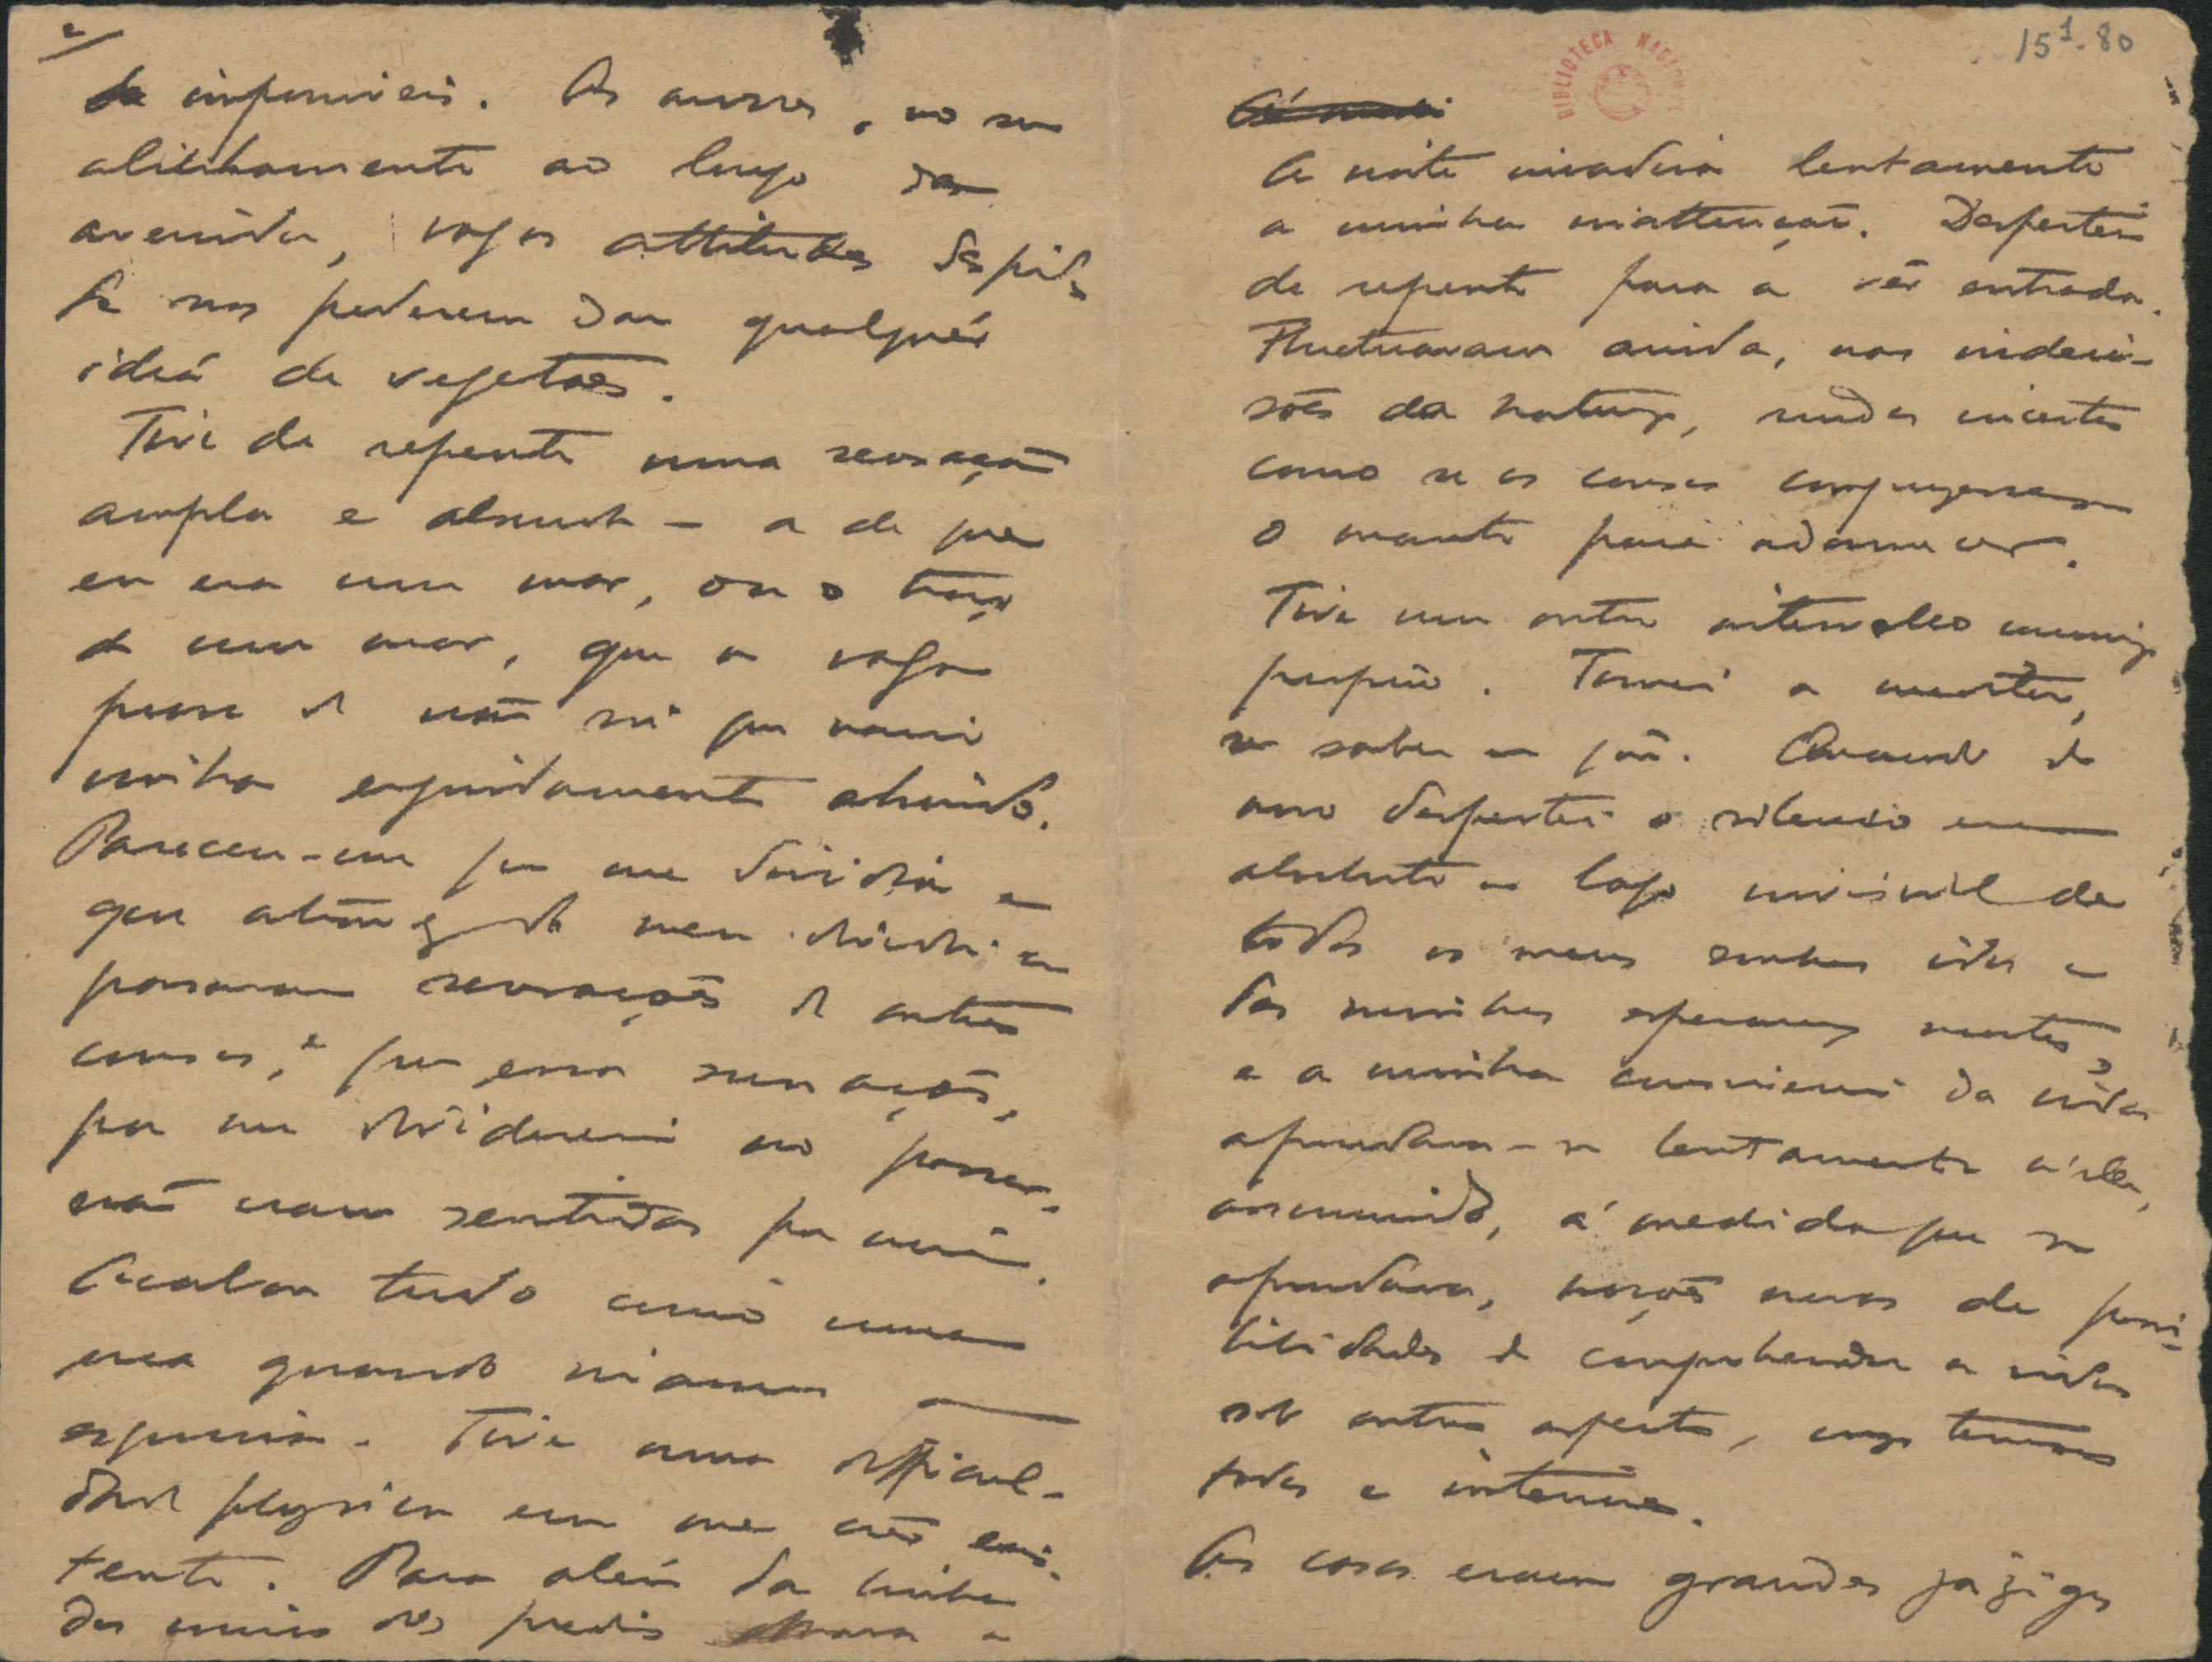 2
de impossiveis. As arvores, no seu
alinhamento ao longo da
avenida, vagas attitudes
de nos poderem dar qualquér
ideá de vegetaes.
Tive de repente uma sensação
ampla e absurda – a de que
eu era um mar, ou o traço
de um mar, que a vaga
prôa de não sei que navio
vinha erguidamente abrindo.
Pareceu-me que me dividia e
que atravez do meu dividir-me
passavam sensações de outras
cousas, e que essas sensações,
por me dividirem ao passar,
não eram sentidas por mim.
Acabou tudo como uma
quando
espuma. Tive uma difficul-
dade physica em me crêr exis-
tente. Para além da linha
dos predios a
151-80
BIBLIOTECA NACIONAL
A noite invadira lentamente
a minha inattenção. Despertei
de repente para a vêr entrada.
Fluctuavam ainda, nas indeci-
sões da natureza, ruidos incertos
como se as cousas
o manto para adormecer.
Tive um outro intervallo commigo
proprio. Tornei a
sem saber em quê. Quando de
novo despertei o silencio era
absoluto o lago invisivel de
todos os meus sonhos idos e
das minhas esperanças mortas,
e a minha consciencia da vida
afundava-se lentamente n'elle,
assumindo, á medida que se
afundava, noções novas de possi-
bilidades de comprehender a vida
sob outros aspectos,
todos e interiores.
As casas eram grandes jazigos